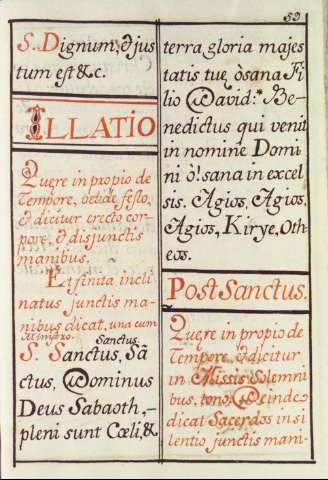 59
S. Dignum, & jus
tum est &c.
ILLATIO
Quęre in propio de
Tempore, vel de festo,
& dicitur erecto cor-
pore, & disjunctis
manibus.
Et finita incli
natus junctis ma-
nibus dicat, una cum
Ministro. Sanctus
S. Sanctus, Sā
ctus, Dominus
Deus Sabaoth,
pleni sunt Cœli, &
terra gloria majes
tatis tuę, òsana Fi
lio David:* Be-
nedictus qui venit
in nomine Domi
ni ò! sana in excel
sis. Agios, Agios,
Agios, Kirye, Oth-
eos.
Post Sanctus.
Quęre in propio de
Tempore, & dicitur
in Missis Solemni
bus, tono, Deinde
dicat Sacerdos in si
lentio junctis mani-